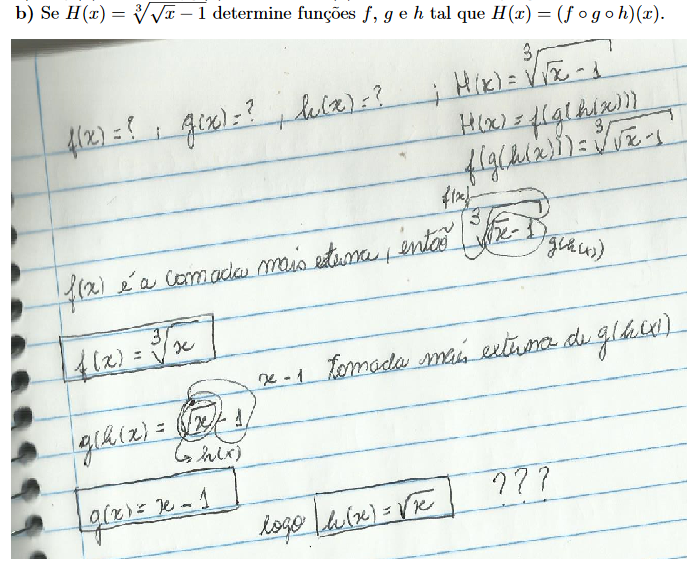 b) Se H(x) = ∛(√x − 1) determine funções f, g e h tal que H(x) = (f ∘ g ∘ h)(x).
f(x) = ? , g(x) = ? , h(x) = ? ; H(x) = ∛(√x − 1)
H(x) = f(g(h(x)))
f(g(h(x))) = ∛(√x − 1)
f(x)
f(x) é a camada mais externa, então ∛(√x − 1)
g(h(x))
f(x) = ∛x
x − 1 Tomada mais externa de g(h(x))
g(h(x) = √x − 1
↳ h(x)
g(x) = x − 1
logo h(x) = √x ???